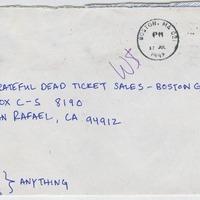 BOSTON, MA 021
PM
17 JUL
RATEFUL DEAD TICKET SALES - BOSTON G
OX C-S 8190
AN RAFAEL, CA 94912
} ANYTHING